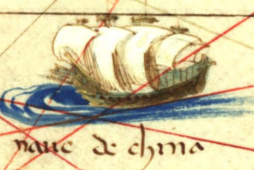 naue de china